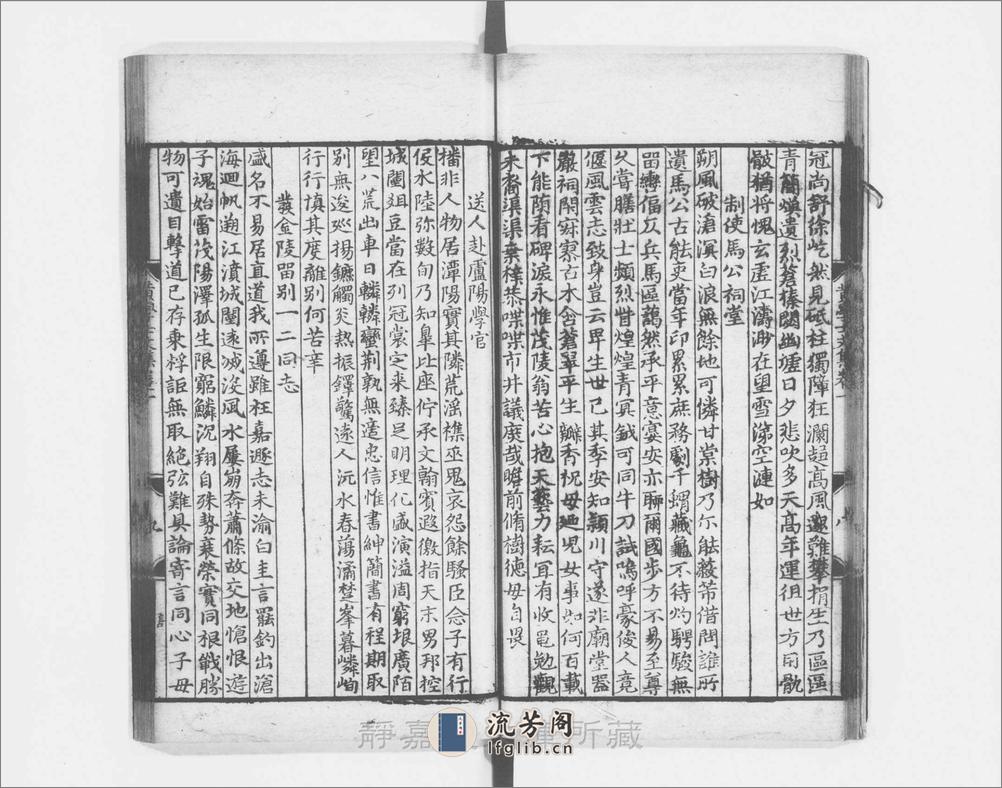 冠尚舒徐屹然見砥柱獨障狂瀾趨高風邈難攀捐生乃區區
青簡爛遺烈蒼榛閟幽壚日夕悲吹多天髙年運徂世方用骫
骳猶將愧玄虛江濤渺在望雪涕空漣如
制使馬公祠堂
朔風破滄溟白浪無餘地可憐甘棠樹乃尔能蔽芾借問誰所
遺馬公古能吏當年印累累庶務劇千蝟藏龜不待灼騁駿無
留轡偏仄兵馬區藹然承平意宴安亦聊爾國步方不易至尊
久嘗膳壯士頳烈甘煌煌青冥鉞可同牛刀試嗚呼豪俊人竟
偃風雲志致身豈云早生世已其季安知潁川守遂非廟堂器
嚴祠閟寂寞古木含蒼翠平生瓣香祝毋廼児女事如何百載
下能陏看碑淚永惟茂陵翁苦心抱天藝力耘冝有收黽勉觀
未裔渠渠棄榱恭喋喋市井議廢哉睢前脩樹德毋自畏
送人赴盧陽學官
播非人物居潭陽實其隣荒滛襍巫鬼哀怨餘騷臣念子有行
役水陸弥數旬乃知臯比座佇承文翰賓遐徼指天末男邦控
城闉俎豆當在列冠裳定来臻足明理化盛演溢周窮垠廣陌
望八荒出車日轔轔蠻荆孰無遠忠信惟書紳簡書有程期取
别無逡廵揚鑣觸炎熱振鐸驚遠人沅水春蕩潏楚峯暮嶙峋
行行慎其度離别何苦辛
發金陵留别一二同志
盛名不易居直道我所遵雖枉嘉遯志未渝白圭言罷釣出滄
海迴帆遡江濆城闉遠滅沒風水屢崩奔蕭條故交地愴恨遊
子魂始雷茂陽澤孤生限窮鱗沉翔自殊勢衰榮實同根戢勝
物可遺目擊道已存乘桴詎無取絶弦難具論寄言同心子毋
流芳阁
lfglib.cn
靜嘉
所藏